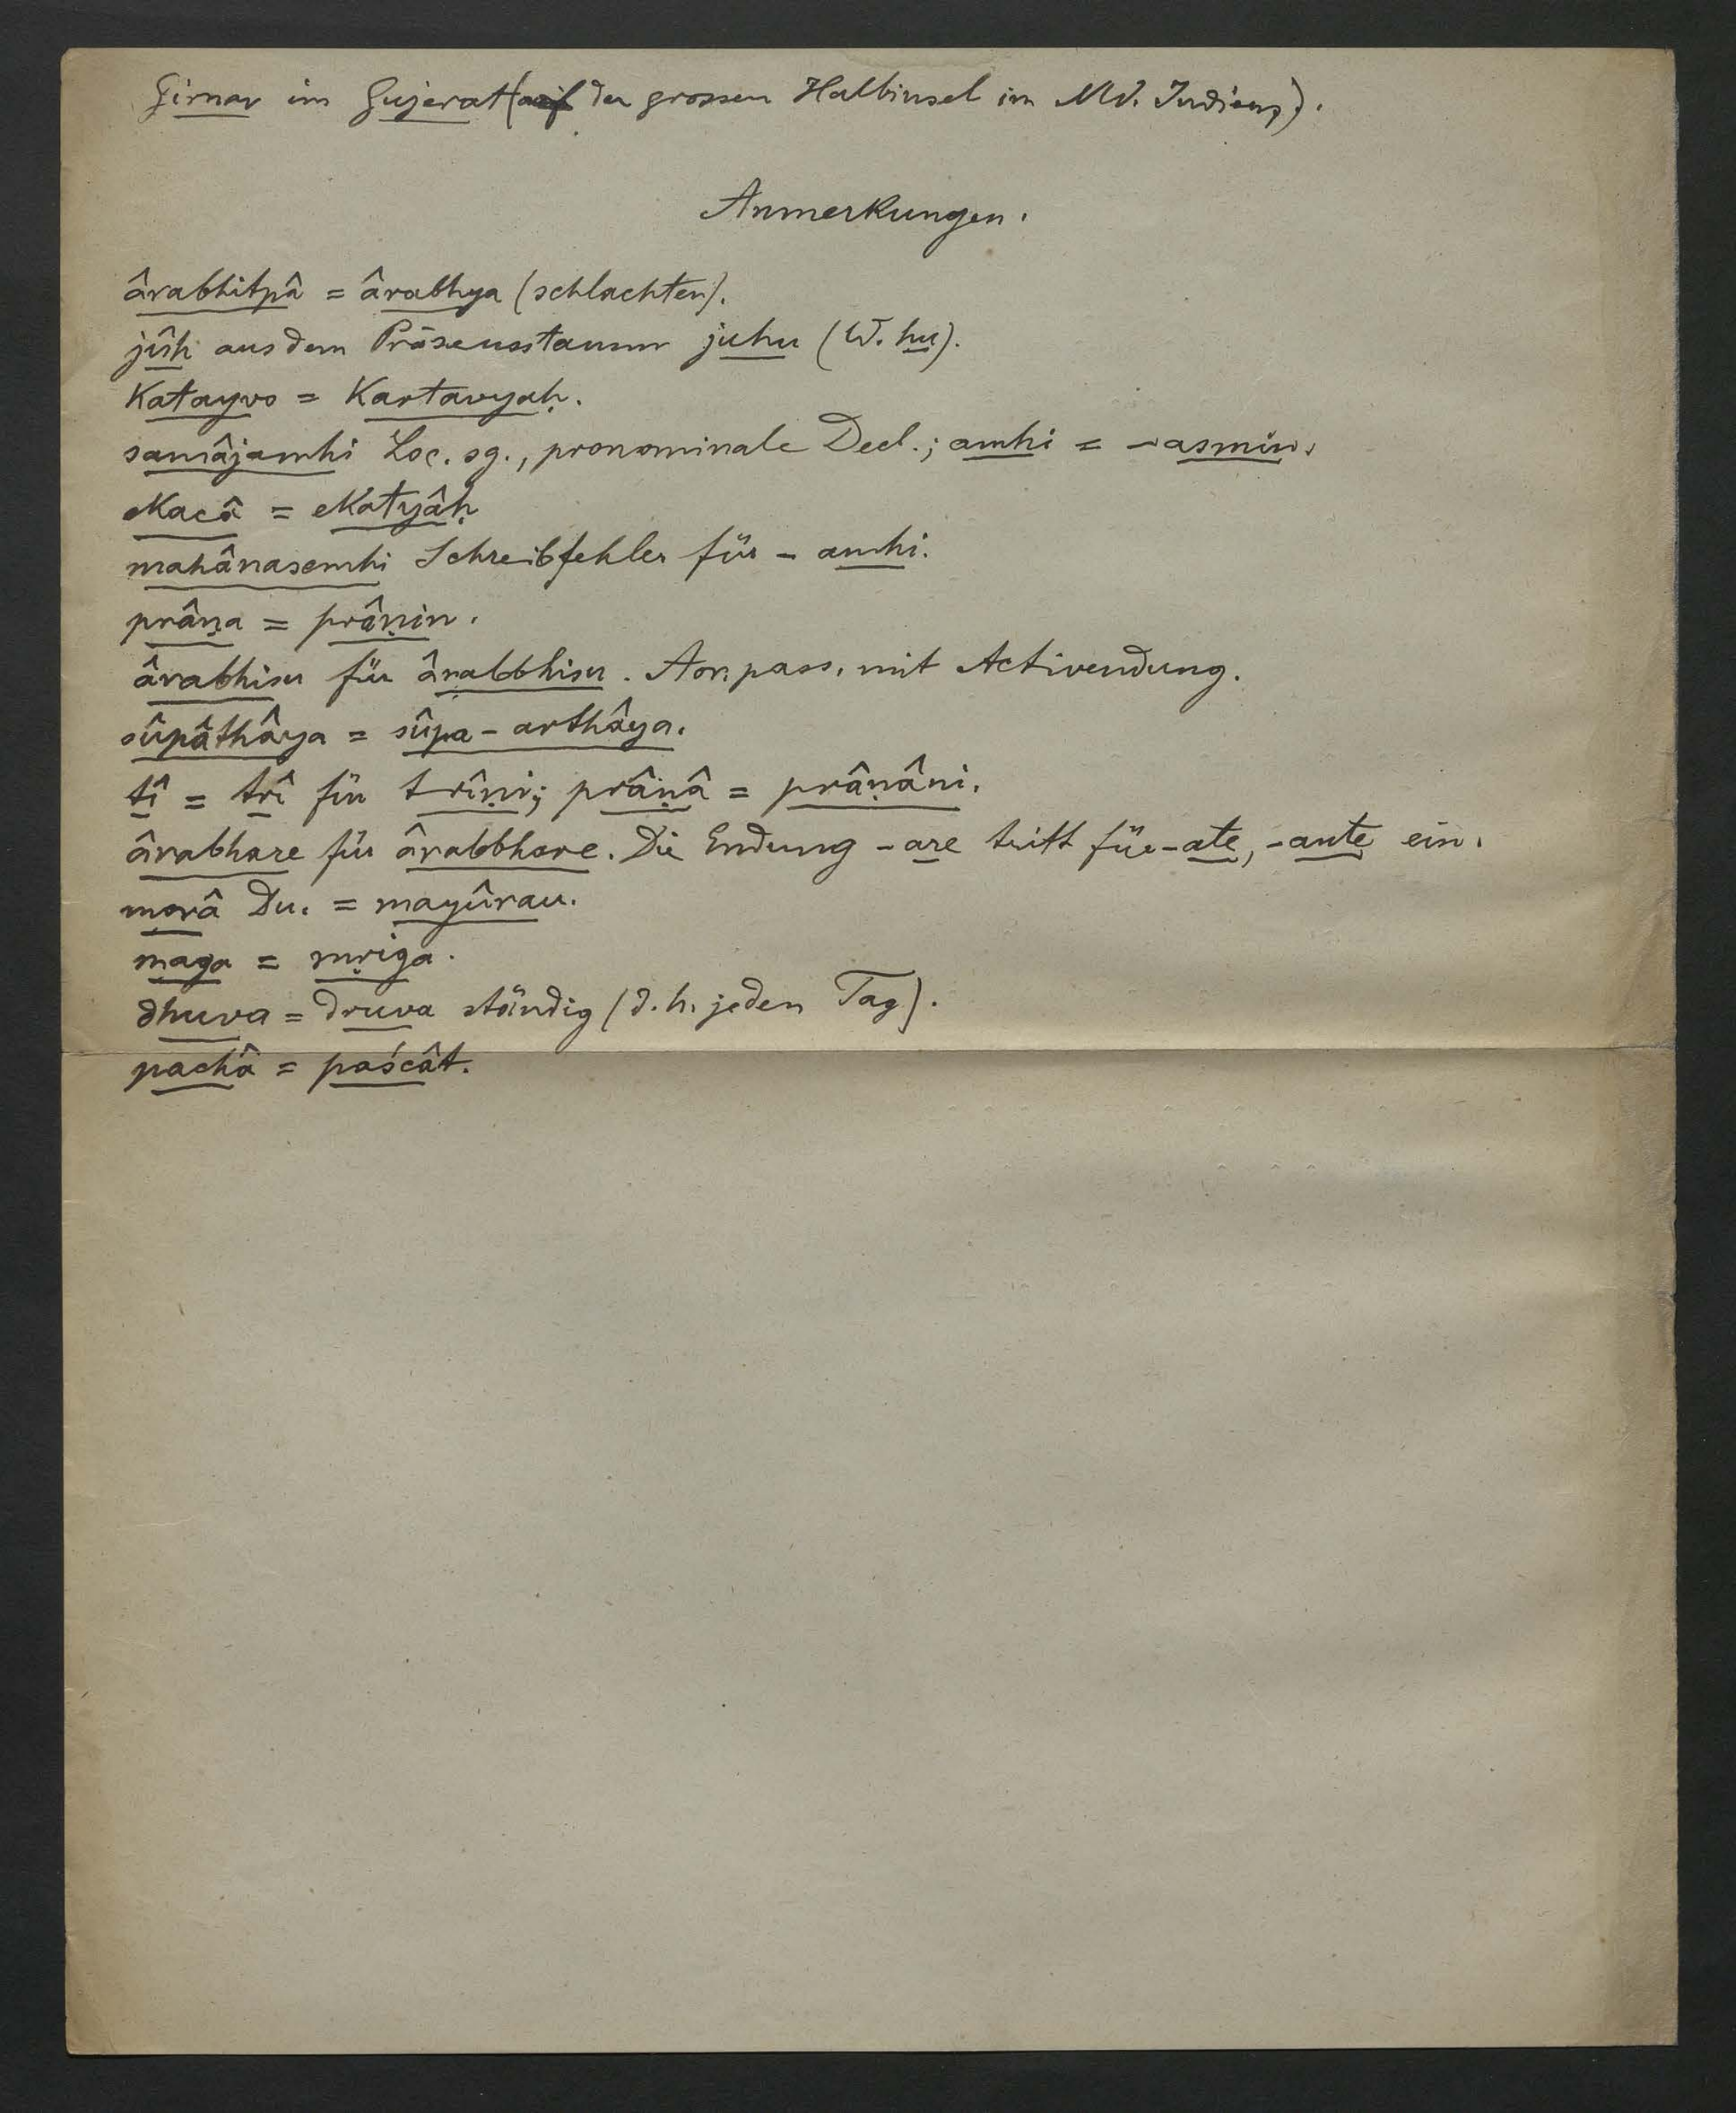 Girnar im Gujerat (auf der grossen Halbinsel im NW. Indiens).
Anmerkungen.
ârabhitpâ = ârabhya (schlachten).
jûh aus dem Präsensstamm juhu (W. hu).
Katayvo = Kartavyaḥ.
samâjamhi Loc. sg., pronominale Decl.; amhi = -asmin.
ekacâ = ekatyâḥ
mahânasemhi Schreibfehler für - amhi.
prâṇa = prâṇin.
ârabhisu für ârabbhisu. Aor. pass. mit Activendung.
sûpâthâya = sûpa - arthâya.
tî = trî für trîṇi; prâṇâ = prâṇâni.
ârabhare für ârabbhare. Die Endung -are tritt für -ate, -ante ein.
morâ Du. = mayûrau.
maga = mṛiga.
dhuva = druva ständig (d.h. jeden Tag).
pachâ = paścât.